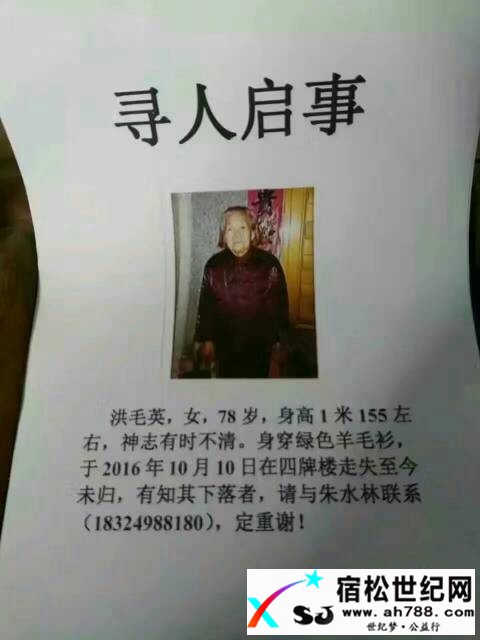 寻人启事
洪毛英，女，78岁，身高1米155左
右，神志有时不清。身穿绿色羊毛衫，
于2016年10月10日在四牌楼走失至今
未归，有知其下落者，请与朱水林联系
（18324988180），定重谢！
XSJ
宿松世纪网
www.ah788.com
世纪梦·公益行